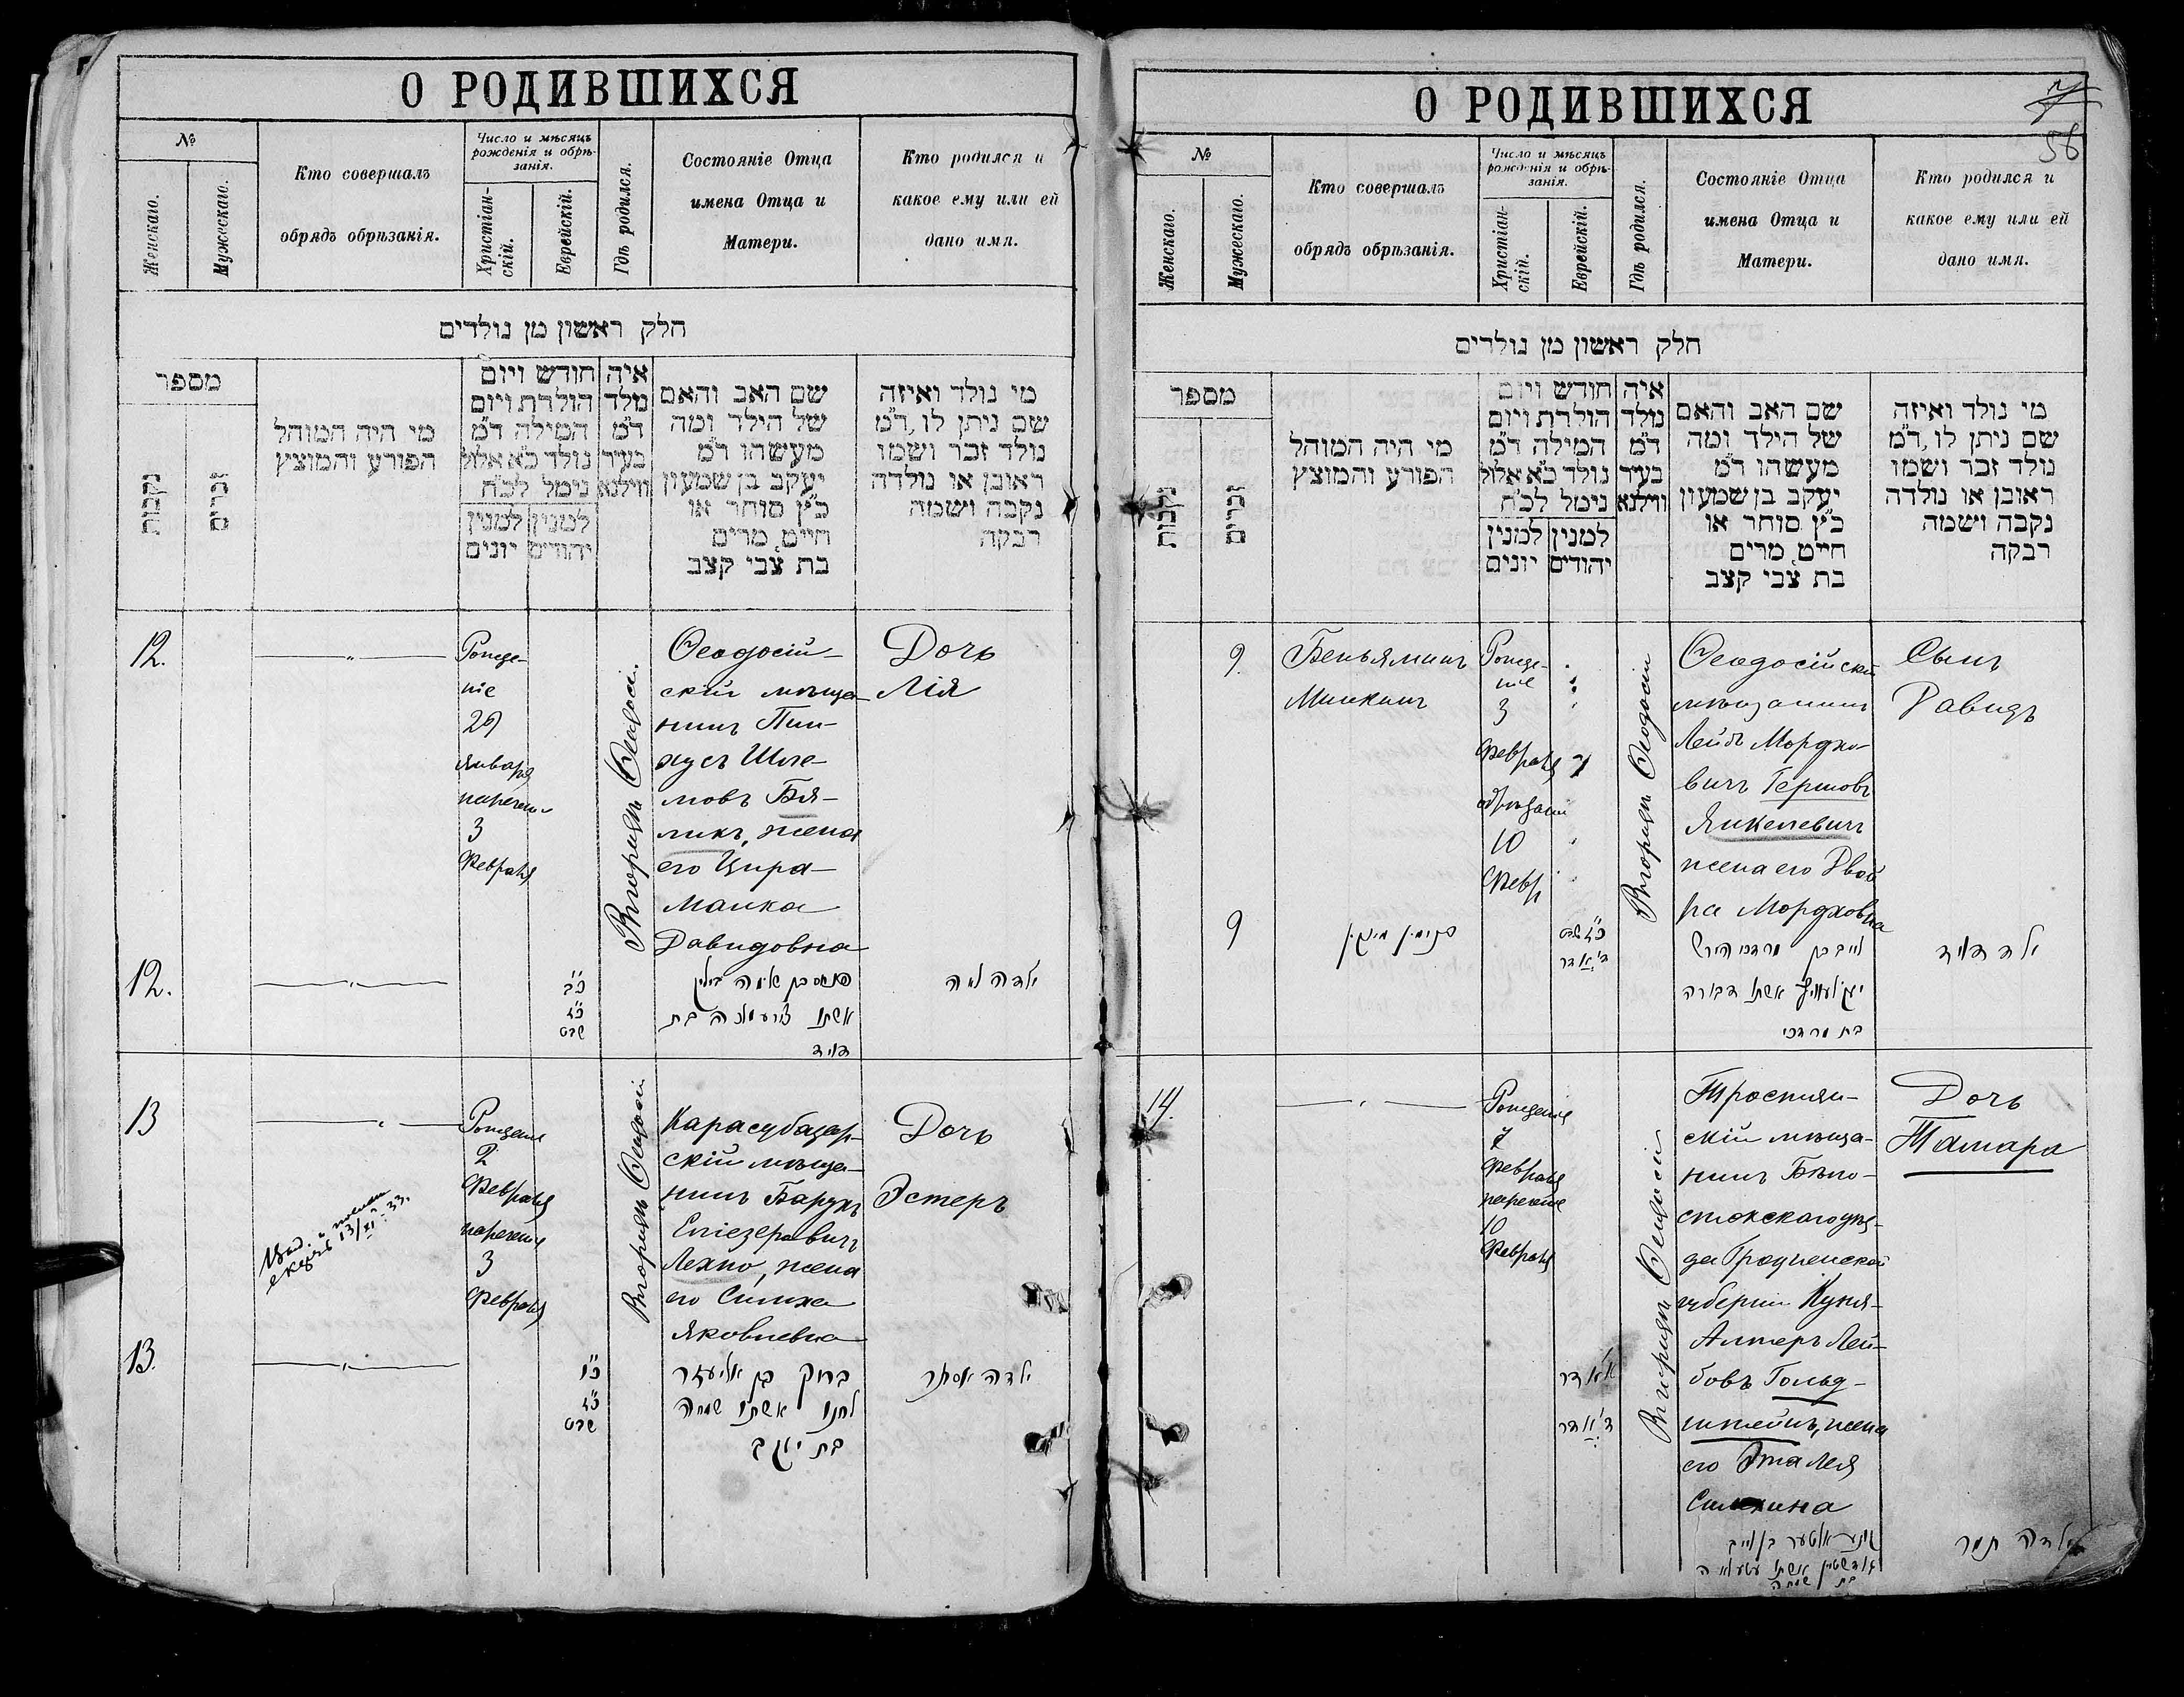 О РОДИВШИХСЯ
№
Женскаго.
Мужескаго.
Кто совершалъ
обрядъ обрѣзанія.
Число и мѣсяцъ
рожденія и обрѣ-
занія.
Христіан-
скій.
Еврейскій.
Гдѣ родился.
Состояніе Отца
имена Отца и
Матери.
Кто родился и
какое ему или ей
дано имя.
חלק ראשון מן נולדים
מספר
נקבות
זכרים
מי היה המוהל
הפורע והמוצץ
איה חודש ויום
מלד הולדת ויום
ד״מ המילה ד״מ
בעיר נולד כ״א אלול
ווילנא נימל לכ״ח
למנין למנין
יהודים יונים
שם האב והאם
של הילד ומה
מעשהו ד״מ
יעקב בן שמעון
כ״ץ סוחר או
חייט מרים
בת צבי קצב
מי נולד ואיזה
שם ניתן לו ד״מ
נולד זכר ושמו
ראובן או נולדה
נקבה ושמה
רבקה
12.
Рожде-
ніе
29
января
нареченіе
3
Февраля
Въ городѣ Ѳеодосіи.
Ѳеодосій-
скій мѣща-
нинъ Пин-
хусъ Шле-
мовъ Бя-
ликъ, жена
его Цира-
Малка
Давидовна
Дочь
Лія
12.
כ״ב
כ״ג
שבט
פנחס בן שלמה ביאליק
אשתו צירע מלכה בת
דוד
ילדה לאה
13
Рожденіе
2
Февраля
нареченіе
3
Февраля
Въ городѣ Ѳеодосіи
Карасубазар-
скій мѣща-
нинъ Барухъ
Еліезеровичъ
Лехно, жена
его Симха
Яковлевна
Дочь
Эстеръ
13.
כ״ו
כ״ג
שבט
ברוך בן אליעזר
לחנו אשתו שמחה
בת יעקב
ילדה אסתר
О РОДИВШИХСЯ
7
56
№
Женскаго.
Мужескаго.
Кто совершалъ
обрядъ обрѣзанія.
Число и мѣсяцъ
рожденія и обрѣ-
занія.
Христіан-
скій.
Еврейскій.
Гдѣ родился.
Состояніе Отца
имена Отца и
Матери.
Кто родился и
какое ему или ей
дано имя.
חלק ראשון מן נולדים
מספר
נקבות
זכרים
מי היה המוהל
הפורע והמוצץ
איה חודש ויום
מלד הולדת ויום
ד״מ המילה ד״מ
בעיר נולד כ״א אלול
ווילנא נימל לכ״ח
למנין למנין
יהודים יונים
שם האב והאם
של הילד ומה
מעשהו ד״מ
יעקב בן שמעון
כ״ץ סוחר או
חייט מרים
בת צבי קצב
מי נולד ואיזה
שם ניתן לו ד״מ
נולד זכר ושמו
ראובן או נולדה
נקבה ושמה
רבקה
9.
Беньяминъ
Минкинъ
Рожде-
ніе
3
Февраля
обрѣзаніе
10
Февр
Въ городѣ Ѳеодосіи
Ѳеодосійскій
мѣщанинъ
Лейбъ Мордко-
вичъ Гершовъ
Янкелевичъ
жена его Двой
ра Мордховна
Сынъ
Давидъ
9
בנימין מינקין
כ״ז שבט
ד׳ אדר
לייב בן מרדכי הירש
יאנקעלעוויץ אשתו דבורה
בת מרדכי
ילד דוד
14.
Рожденіе
7
Февраля
нареченіе
10
Февраля
Въ городѣ Ѳеодосіи
Тростян-
скій мѣща-
нинъ Бѣло-
стокскаго уѣз-
да Гродненской
губерніи Куня-
Алтеръ Лей-
бовъ Гольд-
штейнъ, жена
его Эта Лея
Симхина
Дочь
Тамара
א׳ אדר
ד׳ אדר
קוניע אלטער בן לייב
גולדשטיין אשתו עטע לאה
בת שמחה
ילדה תמר